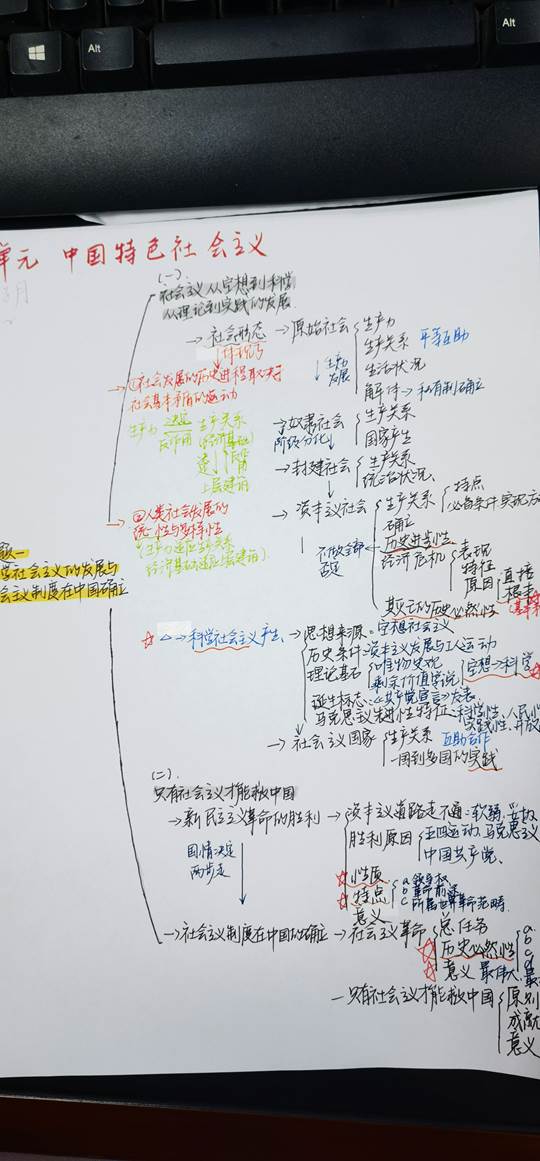 Alt
Alt
单元 中国特色社会主义
(一).
社会主义从空想到科学
从理论到实践的发展.
→社会形态→原始社会
生产力
生产关系 平等互助
生活状况
解体→私有制确立
生产力
发展
→①社会发展的历史进程取决于
社会基本矛盾的运动
生产力 决定 生产关系
反作用 (经济基础)
上层建筑
→奴隶社会
阶级分化
生产关系
国家产生
→封建社会
生产关系
统治状况、
→②人类社会发展的
统一性与多样性
→资本主义社会
生产关系
确立
特点
必备条件
历史进步性
经济危机
表现
特征
原因
直接
根本
其灭亡的历史必然性
学社会主义的发展与
会主义制度在中国确立
☆△→科学社会主义产生、
思想来源:空想社会主义
历史条件:资本主义发展与工人运动
理论基石
唯物史观
剩余价值学说
空想→科学
诞生标志:《共产党宣言》发表.
马克思主义先进性特征:科学性、人民性
实践性、开放
→社会主义国家
生产关系 互助合作
一国到多国的实践
(二).
只有社会主义才能救中国
→新民主主义革命的胜利→
资本主义道路走不通:软弱
胜利原因
五四运动、马克思主义
中国共产党、
国情决定
两步走
☆性质
☆特点
a 领导权
b 革命前途
c 所属世界革命范畴.
意义
→社会主义制度在中国的确立→社会主义革命
总任务
☆历史必然性
☆意义
a.
b
c
d
一只有社会主义才能救中国
成就
意义